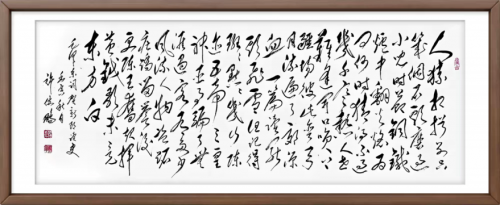 人猿相揖别只
几个石头磨过
小儿时节铜铁
炉中翻火焰为
问何时猜得不过
几千寒热人世
难逢开口笑上
疆场彼此弯弓
月流遍了郊原
血一篇读罢
头飞雪但记得
斑斑点点几行陈
迹五帝三皇
神圣事骗了无
涯过客有多少
风流人物盗跖
庄蹻流誉后
更陈王奋起挥
黄钺歌未竟
东方白
毛泽东词贺新郎读史